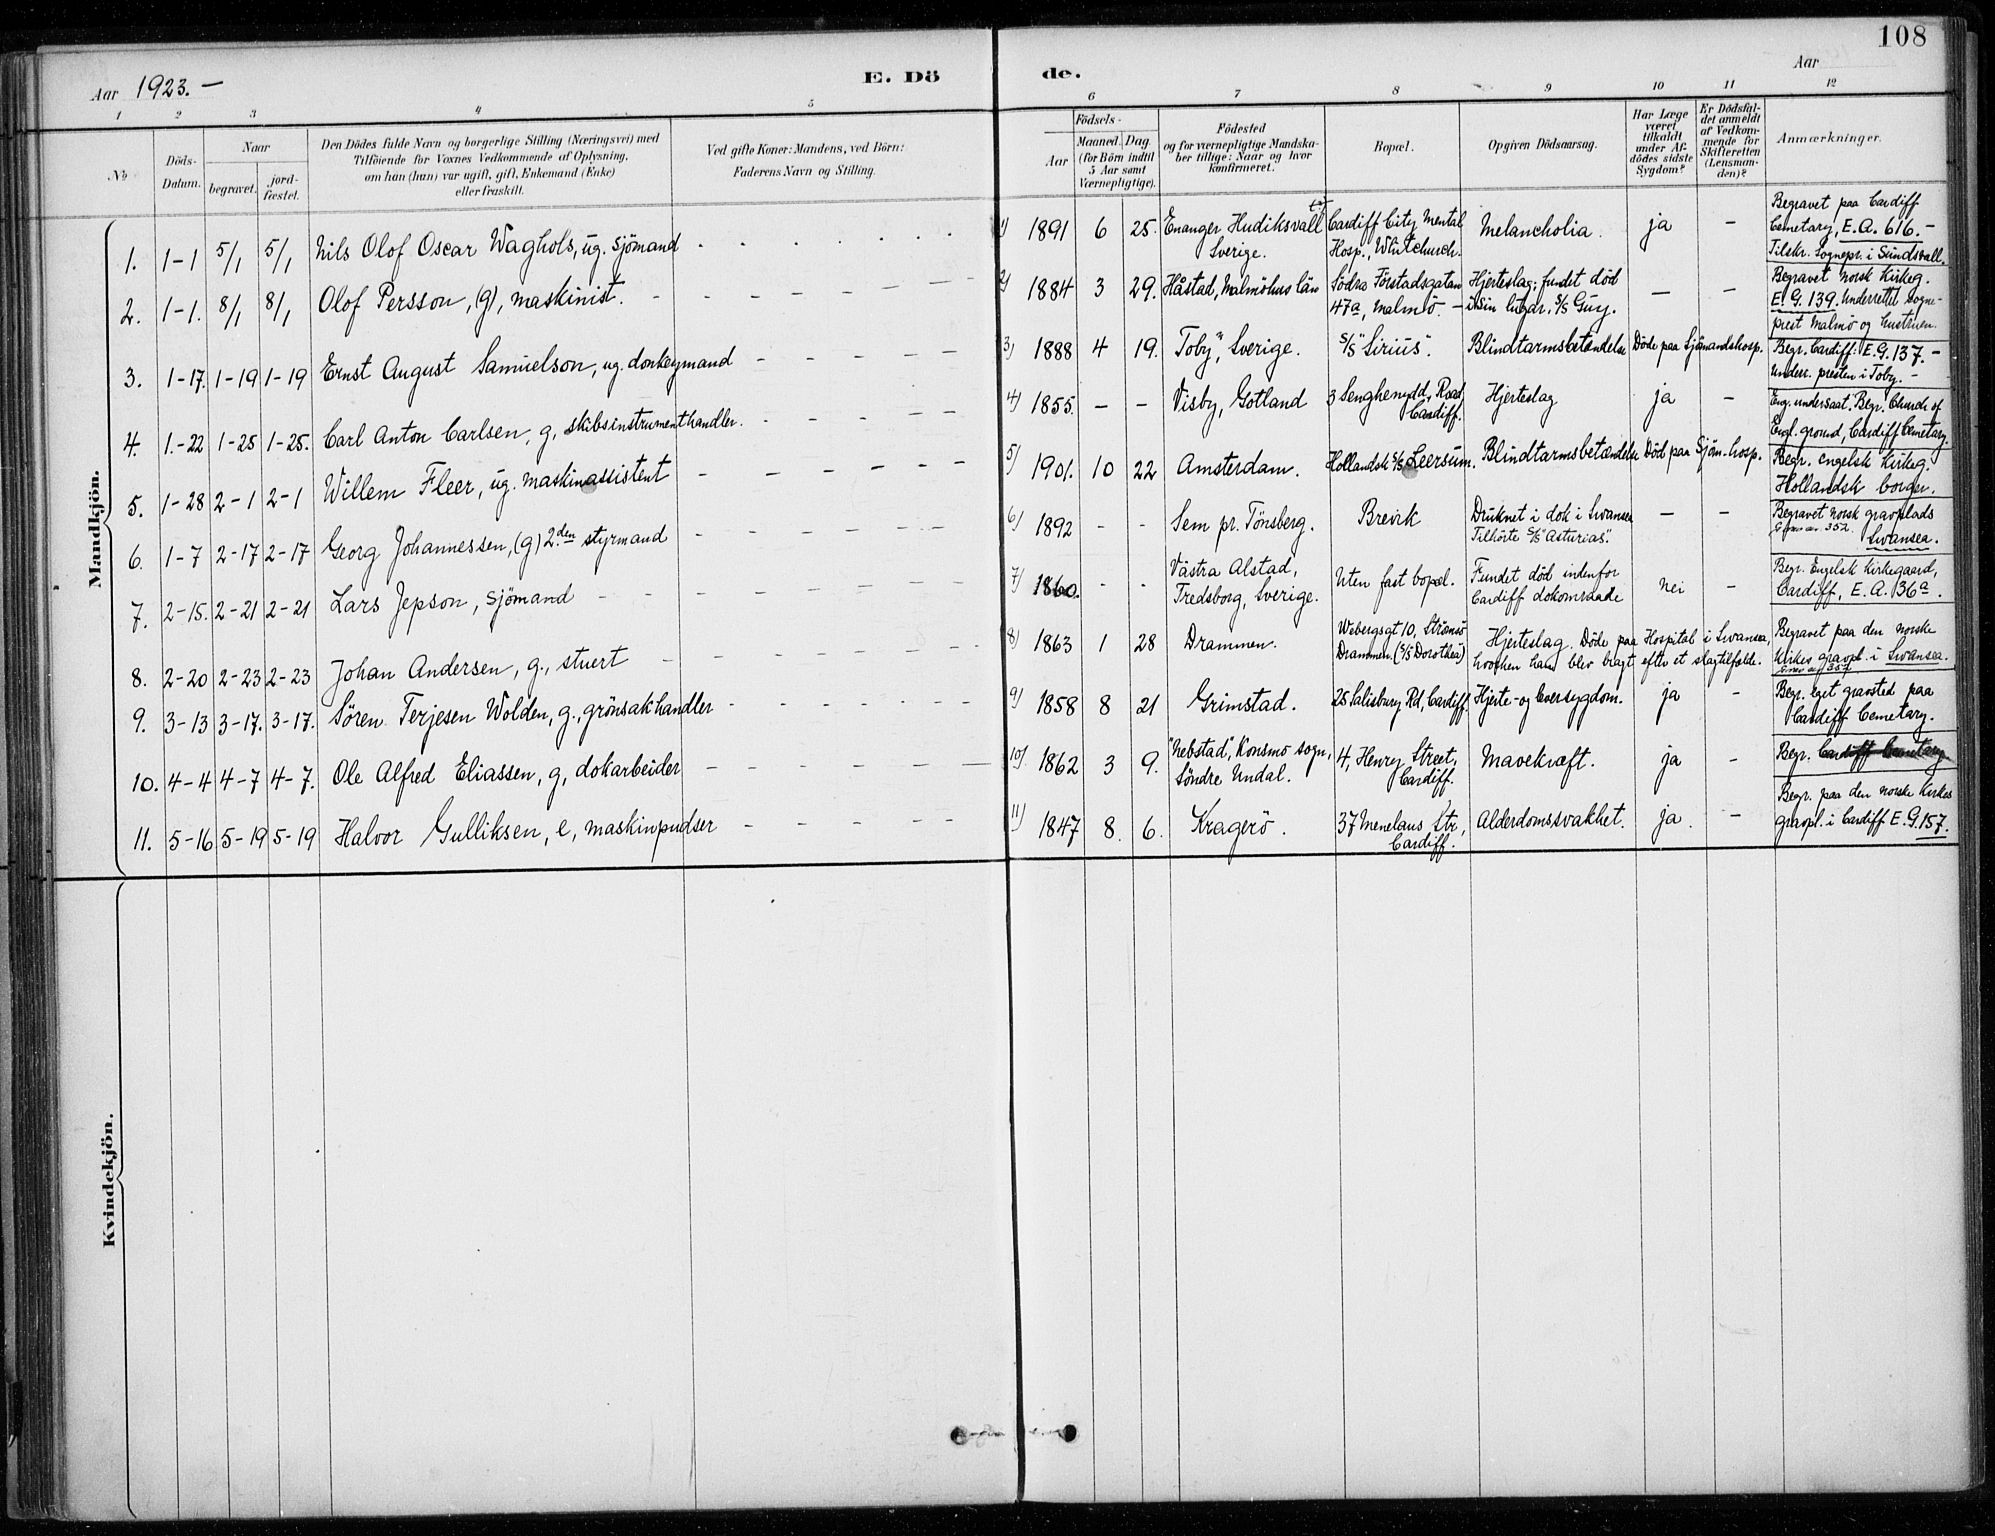 108
Aar 1923.—
E. Dö
de.
Aar
1 2 3 4 5 6 7 8 9 10 11 12
No
Döds-
Datum.
Naar
begravet.
jord-
fæstet.
Den Dödes fulde Navn og borgerlige Stilling (Næringsvei) med
Tilföiende for Voxnes Vedkommende af Oplysning,
om han (hun) var ugift, gift, Enkemand (Enke)
eller fraskilt.
Ved gifte Koner: Mandens, ved Börn:
Faderens Navn og Stilling.
Födsels-
Aar
Maaned. Dag
(for Börn indtil
5 Aar samt
Værnepligtige).
Födested
og for værnepligtige Mandska-
ber tillige: Naar og hvor
konfirmeret.
Bopæl.
Opgiven Dödsaarsag.
Har Læge
været
tilkaldt
under Af-
dödes sidste
Sygdom?
Er Dödsfal-
det anmeldt
af Vedkom-
mende for
Skifteretten
(Lensman-
den)?
Anmærkninger.
Mandkjön.
1. 1-1 5/1 5/1 Nils Olof Oscar Waghols, ug. sjömand
1) 1891 6 25. Enanger Hudiksvall Sverige. Cardiff City Mental Hosp., Whitchurch. Melancholia. ja —
Begravet paa Cardiff
Cemetary, E.A. 616.—
Tilskr. Sognepr. i Sundsvall.
2. 1-1. 8/1 8/1 Olof Persson, (g), maskinist.
2) 1884 3 29. Håstad, Malmöhus län Södra Förstadsgatan 47a, Malmö.— Hjerteslag; fundet död i sin lugar, S/S Guy. — —
Begravet norsk Kirkeg.
E.G. 139. Underrettet sogne-
prest Malmö og hustruen.
3. 1-17. 1-19 1-19 Ernst August Samuelson, ug. donkeymand
3) 1888 4 19. "Toby", Sverige. S/S "Sirius". Blindtarmsbetændelse Döde paa Sjömandshosp.
Begr. Cardiff. E.G. 137.—
Underr. presten i Toby.—
4. 1.-22 1-25 1-25. Carl Anton Carlsen, g, skibsinstrumenthandler.
4) 1855. — — Visby, Gotland 3 Senghenydd, Road Cardiff. Hjerteslag ja —
Eng. undersaat. Begr. Church of
Engl. ground, Cardiff Cemetary.
5. 1-28 2-1 2-1 Willem Fleer, ug. maskinassistent
5) 1901. 10 22 Amsterdam. Hollandsk S/S Leersum. Blindtarmsbetændelse Död paa Sjöm.-hosp.
Begr. engelsk Kirkeg.
Hollandsk borger.
6. 1-7 2-17 2-17 Georg Johannessen, (g) 2.den styrmand
6) 1892 - - Sem pr. Tönsberg. Brevik Druknet i dok i Swansea Tilhörte S/S "Asturias". — —
Begravet norsk gravplads
Grav nr. 352 Swansea.
7. 2-15. 2-21 2-21 Lars Jepson, sjömand
7) 1860. - - Västra Alstad, Tredsborg, Sverige. Uten fast bopæl. Fundet död indenfor Cardiff dokomraade Nei —
Begr. Engelsk Kirkegaard,
Cardiff, E.A. 136a.
8. 2-20 2-23 2-23 Johan Andersen, g., stuert
8) 1863 1 28 Drammen. Webergsgt 10, Strömsö Drammen. (S/S Dorothea) Hjerteslag. Döde paa Hospital i Swansea, hvorhen han blev bragt efter et slagtilfælde.
Begravet paa den norske
Kirkes gravpl. i Swansea.
Grav nr 352
9. 3-13 3-17. 3-17. Sören Terjesen Wolden, g., grönsakhandler
9) 1858 8 21 Grimstad. 25 Salisbury Rd, Cardiff Hjerte- og leversygdom. ja -
Begr. eget gravsted paa
Cardiff Cemetary.
10. 4-4 4-7 4-7. Ole Alfred Eliassen, g, dokarbeider
10) 1862 3 9. "Nebstad", Konsmo sogn, Söndre Undal. 4, Henry Street, Cardiff. Mavekræft. ja -
Begr. Cardiff Cemetary
11. 5-16 5-19 5-19 Halvor Gulliksen, e, maskinpudser
11) 1847 8. 6. Kragerö. 37 Menelaus Str, Cardiff. Alderdomssvakhet. ja. —
Begr. paa den norske Kirkes
gravpl. i Cardiff E.G. 157.
Kvindekjön.